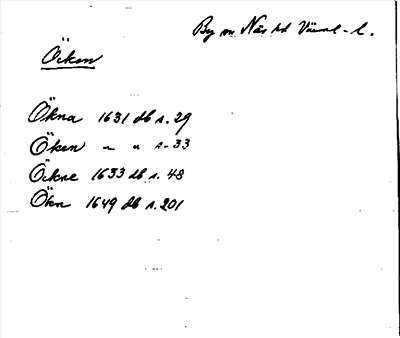 By m. Näs hd Värml. l.
Öcken
Ökna 1631 db s. 29
Öken " " s. 33
Öckne 1633 db s. 48
Ökn 1649 db s. 201